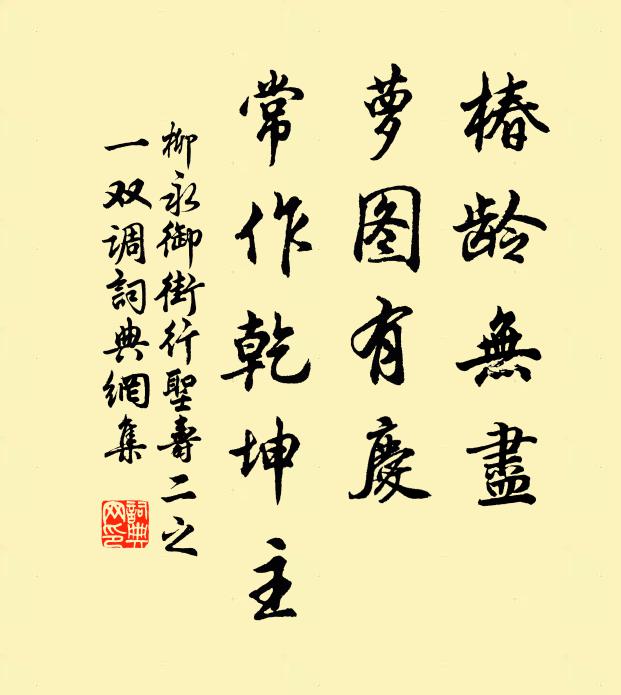 椿龄無盡
萝图有慶
常作乾坤主
柳永御街行聖壽二之
一双调詞典網集
詞典网印